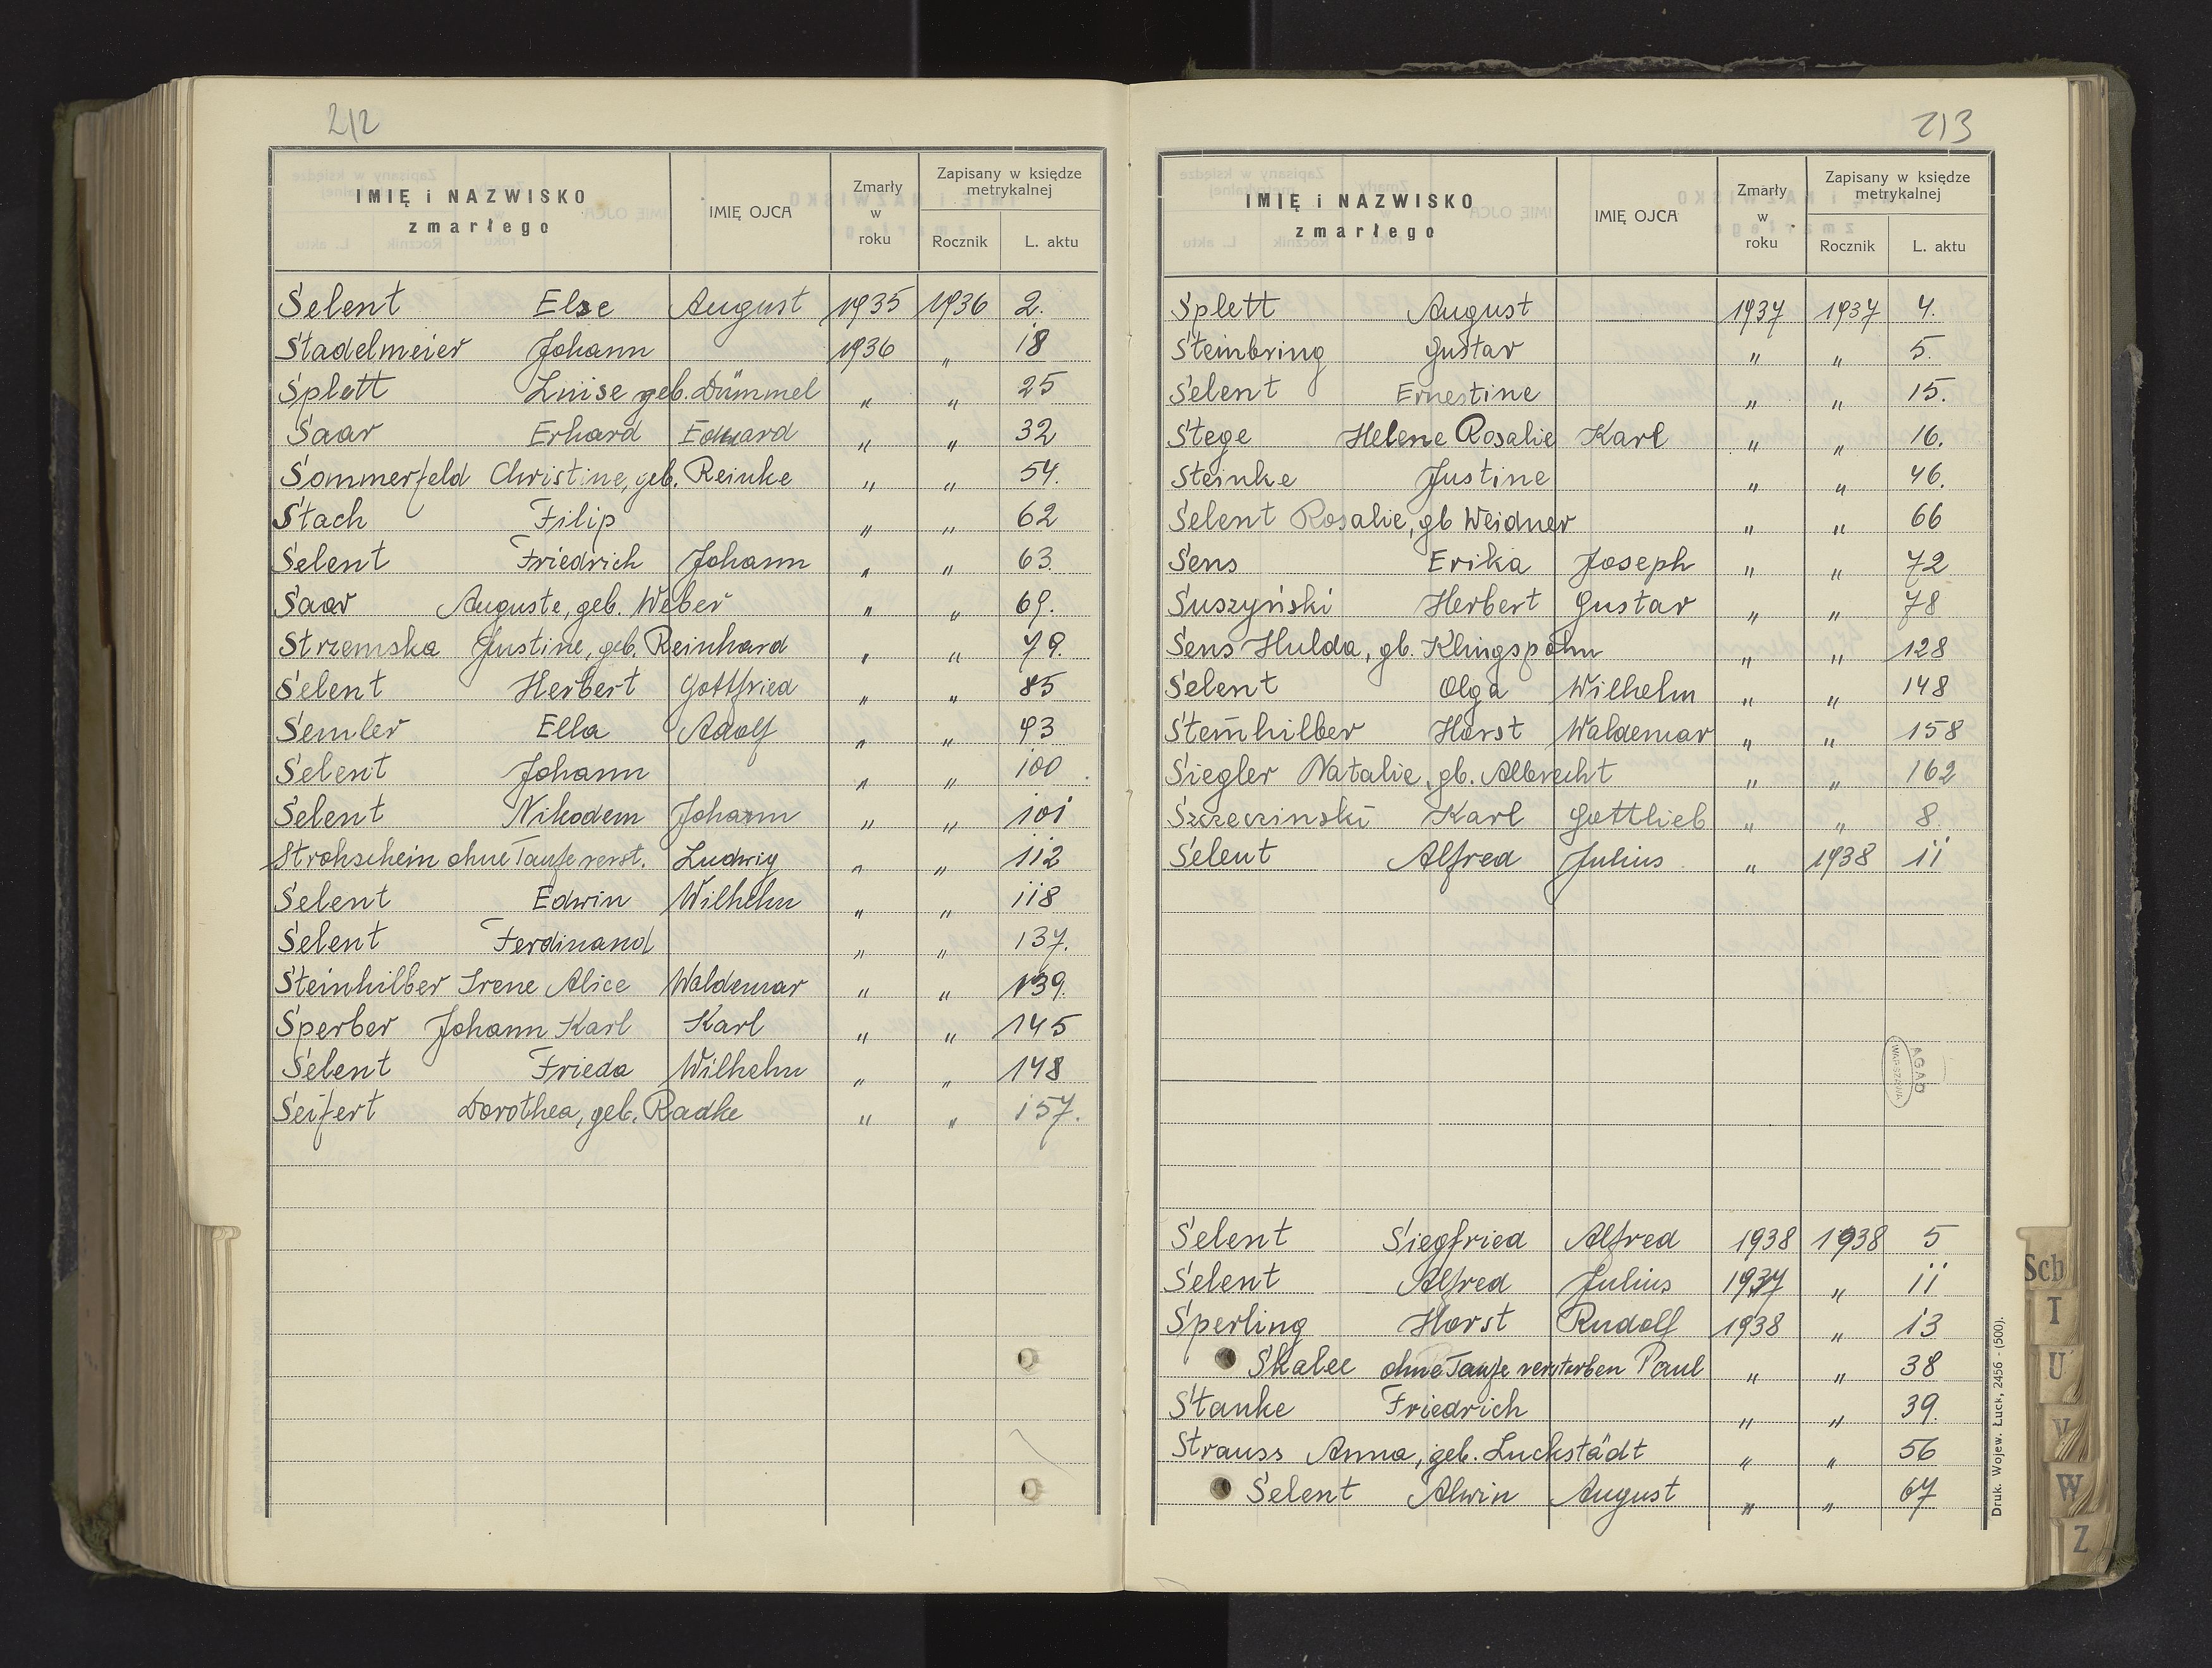 212
IMIĘ i NAZWISKO zmarłego IMIĘ OJCA Zmarły w roku Zapisany w księdze metrykalnej Rocznik L. aktu
Selent Else August 1935 1936 2.
Stadelmeier Johann 1936 " 18
Splett Luise geb. Dümmel " " 25
Saar Erhard Eduard " " 32
Sommerfeld Christine, geb. Reinke " " 54.
Stach Filip " " 62
Selent Friedrich Johann " " 63.
Saar Auguste, geb. Weber " " 69.
Strzemska Justine, geb. Reinhard " " 79.
Selent Herbert Gottfried " " 85
Semler Ella Adolf " " 93
Selent Johann " " 100
Selent Nikodem Johann " " 101
Strohschein ohne Taufe verst. Ludwig " " 112
Selent Edwin Wilhelm " " 118
Selent Ferdinand " " 137.
Steinhilber Irene Alice Waldemar " " 139.
Sperber Johann Karl Karl " " 145
Selent Frieda Wilhelm " " 148
Seifert Dorothea, geb. Radke " " 157.
213
IMIĘ i NAZWISKO zmarłego IMIĘ OJCA Zmarły w roku Zapisany w księdze metrykalnej Rocznik L. aktu
Splett August 1937 1937 4.
Steinbring Gustav " " 5.
Selent Ernestine " " 15.
Stege Helene Rosalie Karl " " 16.
Steinke Justine " " 46.
Selent Rosalie, gb Weidner " " 66
Sens Erika Joseph " " 72
Suszyński Herbert Gustav " " 78
Sens Hulda, gb. Klingspohn " " 128
Selent Olga Wilhelm " " 148
Steinhilber Horst Waldemar " " 158
Siegler Natalie, gb. Albrecht " " 162
Szczeczinski Karl Gottlieb " " 8.
Selent Alfred Julius " 1938 11
AGAD WARSZAWA
Selent Siegfried Alfred 1938 1938 5
Selent Alfred Julius 1937 " 11
Sperling Horst Rudolf 1938 " 13
Skalee ohne Taufe verstorben Paul " " 38
Stanke Friedrich " " 39.
Strauss Anna, geb. Luckstädt " " 56
Selent Alwin August " " 67
Druk. Wojew. Łuck, 2456 - (500).
Sch
T
U
V
W
Z